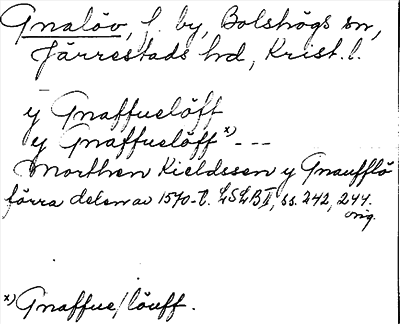 Gnalöv, f. by, Bolshögs sn,
Järrestads hd, Krist. l.
y Gnaffuelöff
y Gnaffuelöff x) ---
Morthen Kieldssen y Gnaufflö
förra delen av 1570-t. LSLB II, ss. 242, 244.
orig.
x) Gnaffue/löuff.